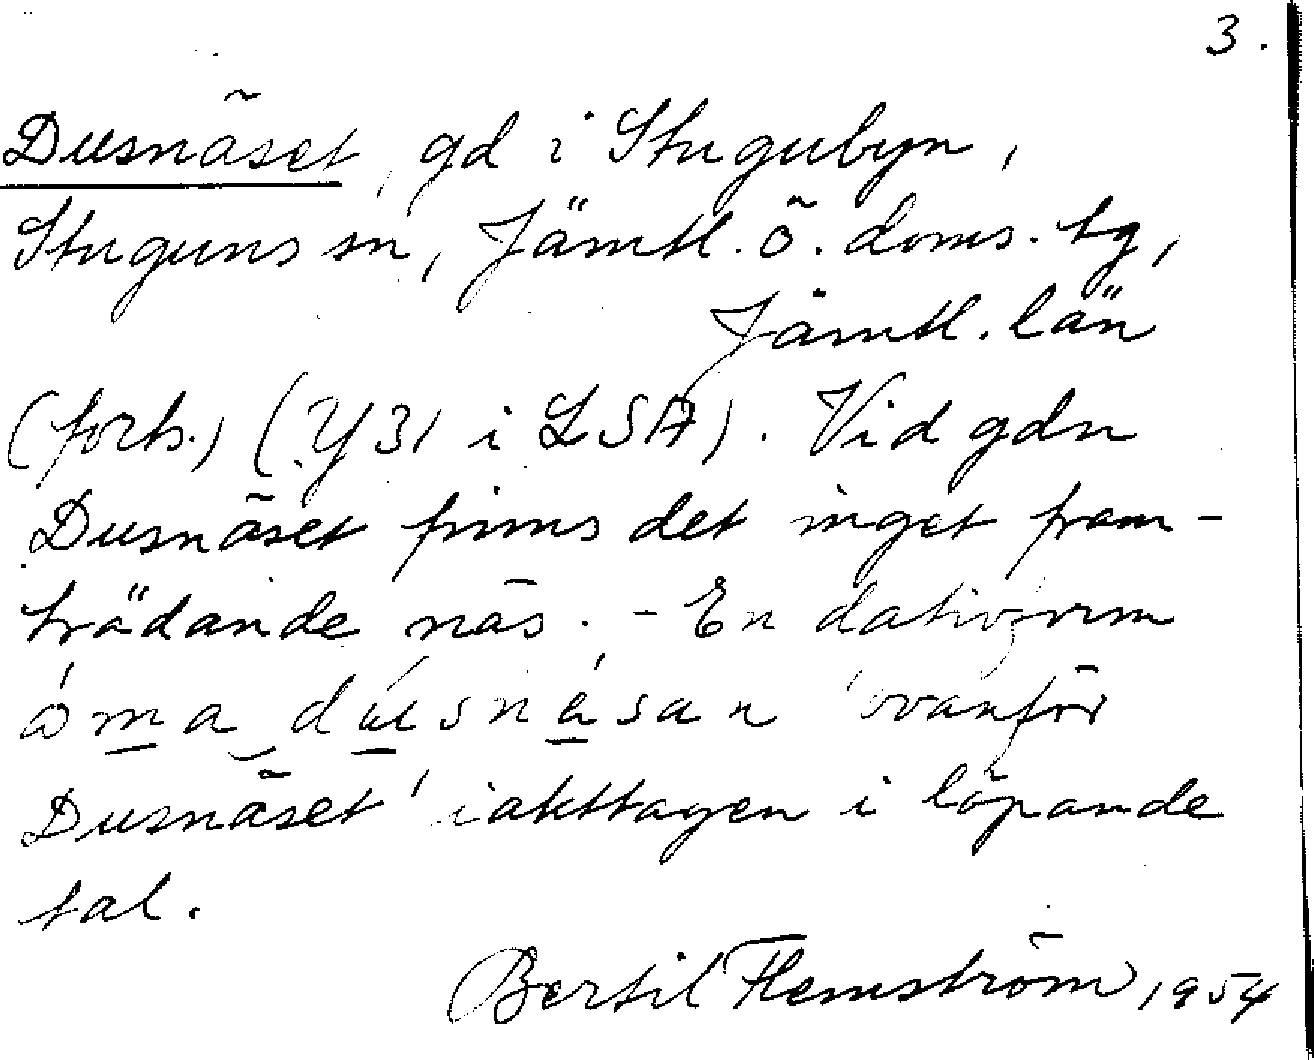 3.
Dusnäset, gd i Stugubyn,
Stuguns sn, Jämtl. ö. doms. tg,
Jämtl. län
(forts.) (Y31 i LSA). Vid gdn
Dusnäset finns det inget fram-
trädande näs. - En dativform
óma dúsnásan 'ovanför
Dusnäset' iakttagen i löpande
tal.
Bertil Flemström, 1954